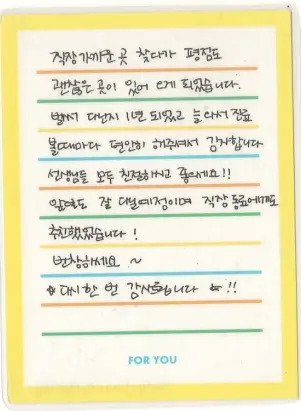 직장 가까운 곳 찾다가 평점도
괜찮은 곳이 있어 오게 되었습니다.
벌써 다닌지 1년 되었고 늘 와서 진료
볼때마다 편안히 해주셔서 감사합니다
선생님들 모두 친절하시고 좋으세요!!
앞으로도 잘 다닐예정이며 직장 동료에게도
추천했었습니다!
번창하세요~
다시 한 번 감사드립니다!!
FOR YOU